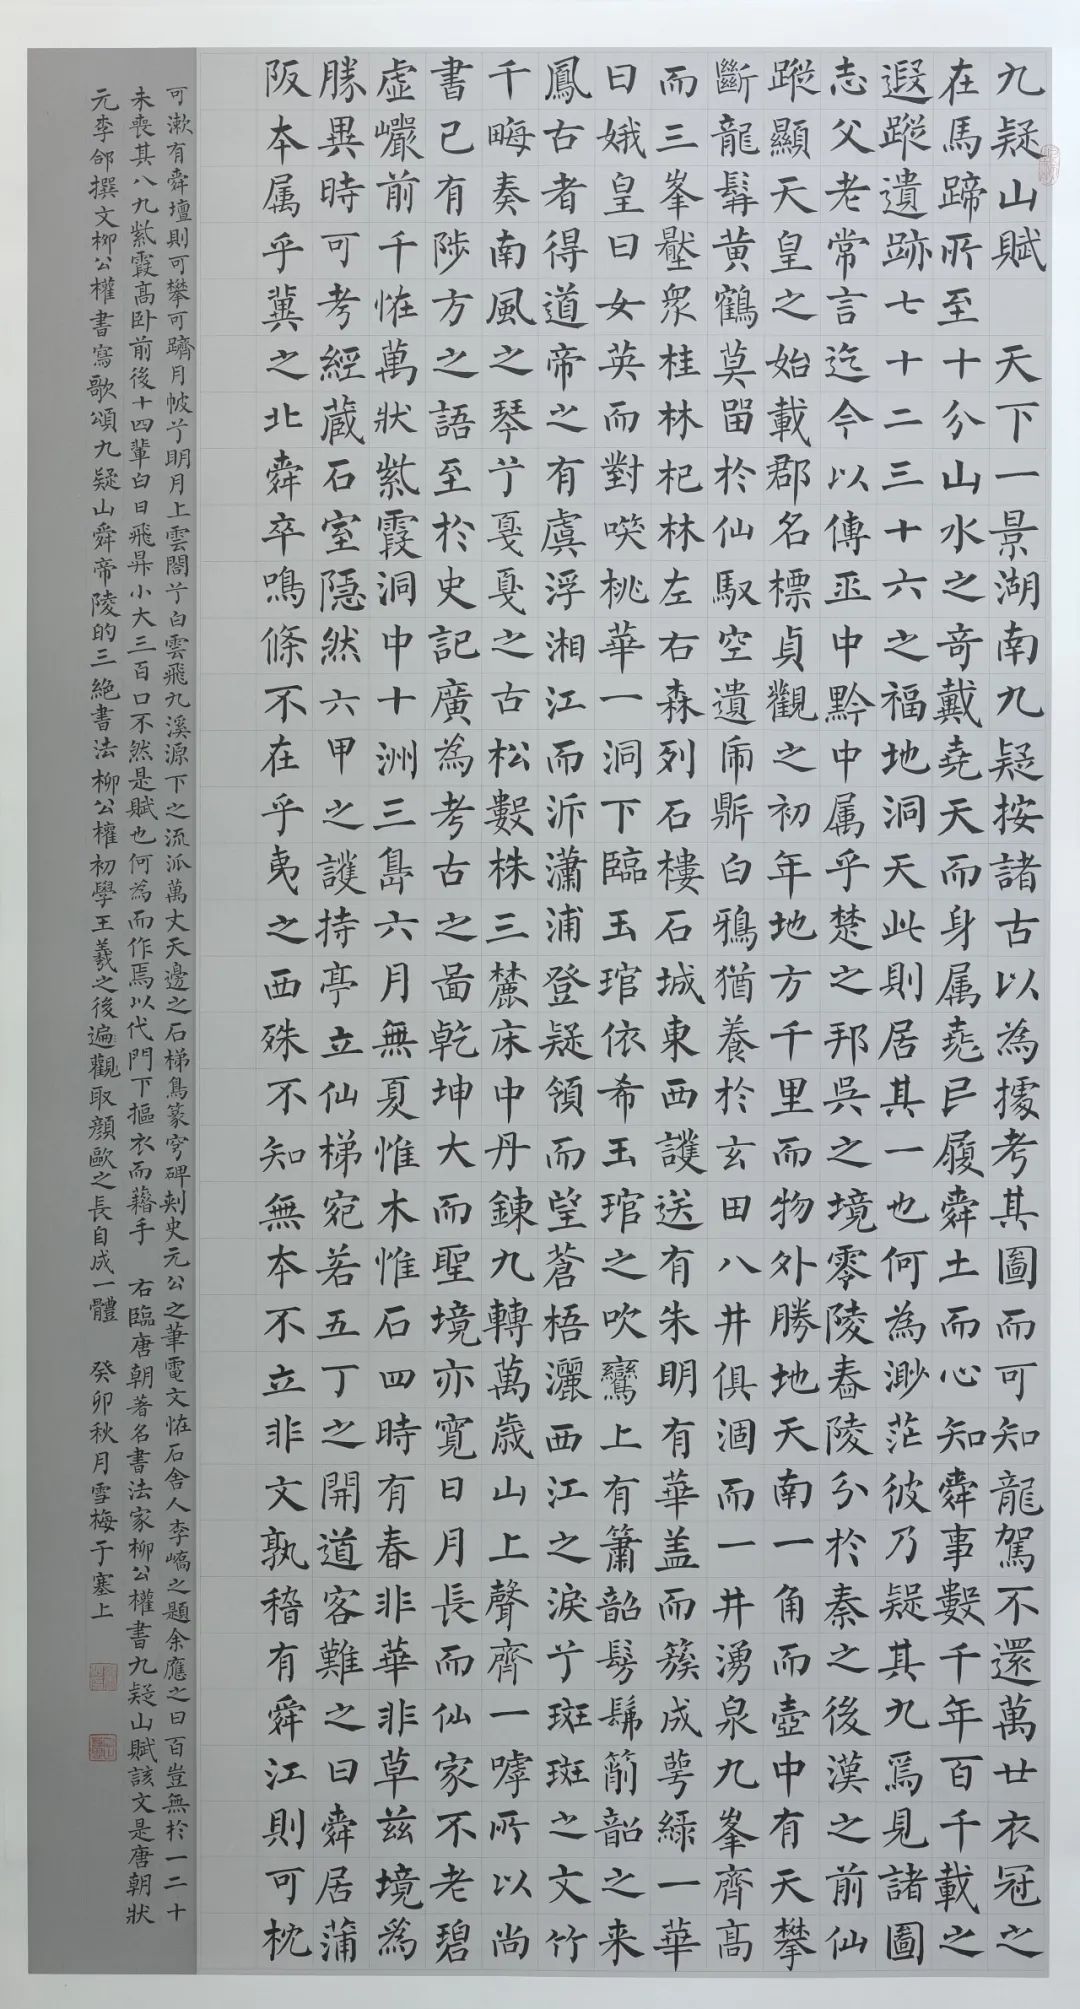 九疑山賦 天下一景湖南九疑按諸古以為據考其圖而可知龍駕不還萬廿衣冠之
在馬蹄所至十分山水之奇戴堯天而身属堯巳履舜土而心知舜事數千年百千載之
遐蹤遺跡七十二三十六之福地洞天此則居其一也何為渺茫彼乃疑其九焉見諸圖
志父老常言迄今以傳巫中黔中属乎楚之邦吳之境零陵春陵分於秦之後漢之前仙
蹤顯天皇之始載郡名標貞觀之初年地方千里而物外勝地天南一角而壺中有天攀
斷龍髯黄鶴莫留於仙馭空遺鼎白鴉猶養於玄田八井俱涸而一井湧泉九峯齊高
而三峯壓衆桂林杞林左右森列石樓石城東西護送有朱明有華盖而簇成萼綠一華
曰娥皇曰女英而對啖桃華一洞下臨玉琯依希玉琯之吹鸞上有簫韶髣髴簫韶之来
鳳古者得道帝之有虞浮湘江而泝瀟浦登疑領而望蒼梧灑西江之淚兮斑斑之文竹
千畮奏南風之琴兮戛戛之古松數株三麓床中丹鍊九轉萬歲山上聲齊一嘑所以尚
書已有陟方之語至於史記廣為考古之啚乾坤大而聖境亦寛日月長而仙家不老碧
虛巖前千恠萬狀紫霞洞中十洲三島六月無夏惟木惟石四時有春非華非草兹境為
勝異時可考經蔵石室隱然六甲之護持亭立仙梯宛若五丁之開道客難之曰舜居蒲
阪本属乎冀之北舜卒鳴條不在乎夷之西殊不知無本不立非文孰稽有舜江則可枕
可漱有舜壇則可攀可躋月帔兮明月上雲閤兮白雲飛九溪源下之流派萬丈天邊之石梯鳥篆穹碑刺史元公之筆電文恠石舍人李嶠之題余應之曰百豈無於一二十
未喪其八九紫霞高卧前後十四輩白日飛昇小大三百口不然是賦也何為而作焉以代門下摳衣而藉手 右臨唐朝著名書法家柳公權書九疑山賦該文是唐朝狀
元李郃撰文柳公權書寫歌頌九疑山舜帝陵的三絕書法柳公權初學王羲之後遍觀取顔歐之長自成一體 癸卯秋月雪梅于塞上